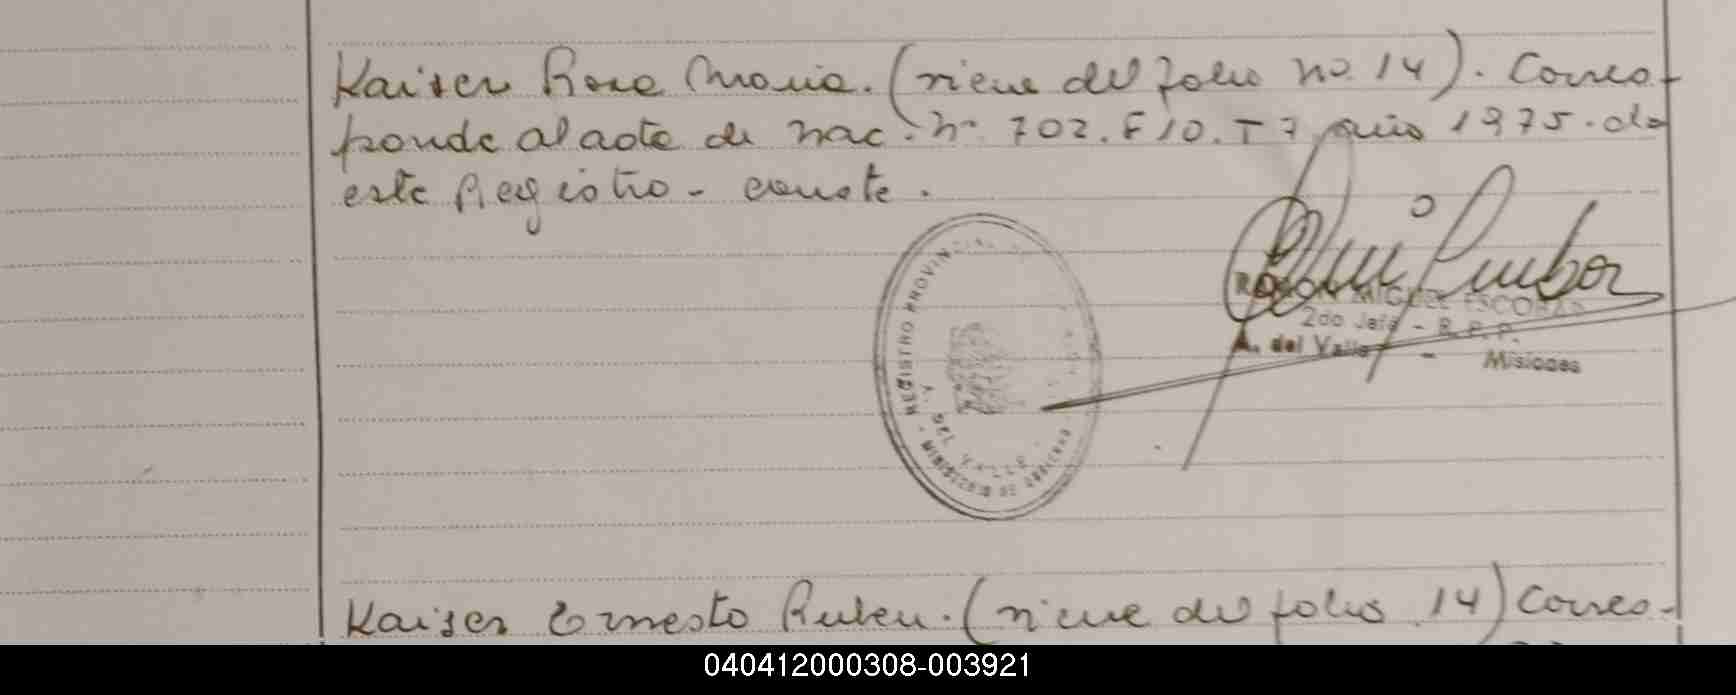 Kaiser Rosa Maria. (viene del folio no. 14). Corres-
ponde al acta de nac. nº. 702. F 10. T 7 año 1975. de
este Registro - conste.
REGISTRO PROVINCIAL
MINISTERIO DE GOBIERNO
A. DEL VALLE
RAMON MIGUEL ESCOBAR
2do Jefe - R. P. P.
A. del Valle - Misiones
Kaiser Ernesto Ruben. (viene del folio 14) Corres-
040412000308-003921